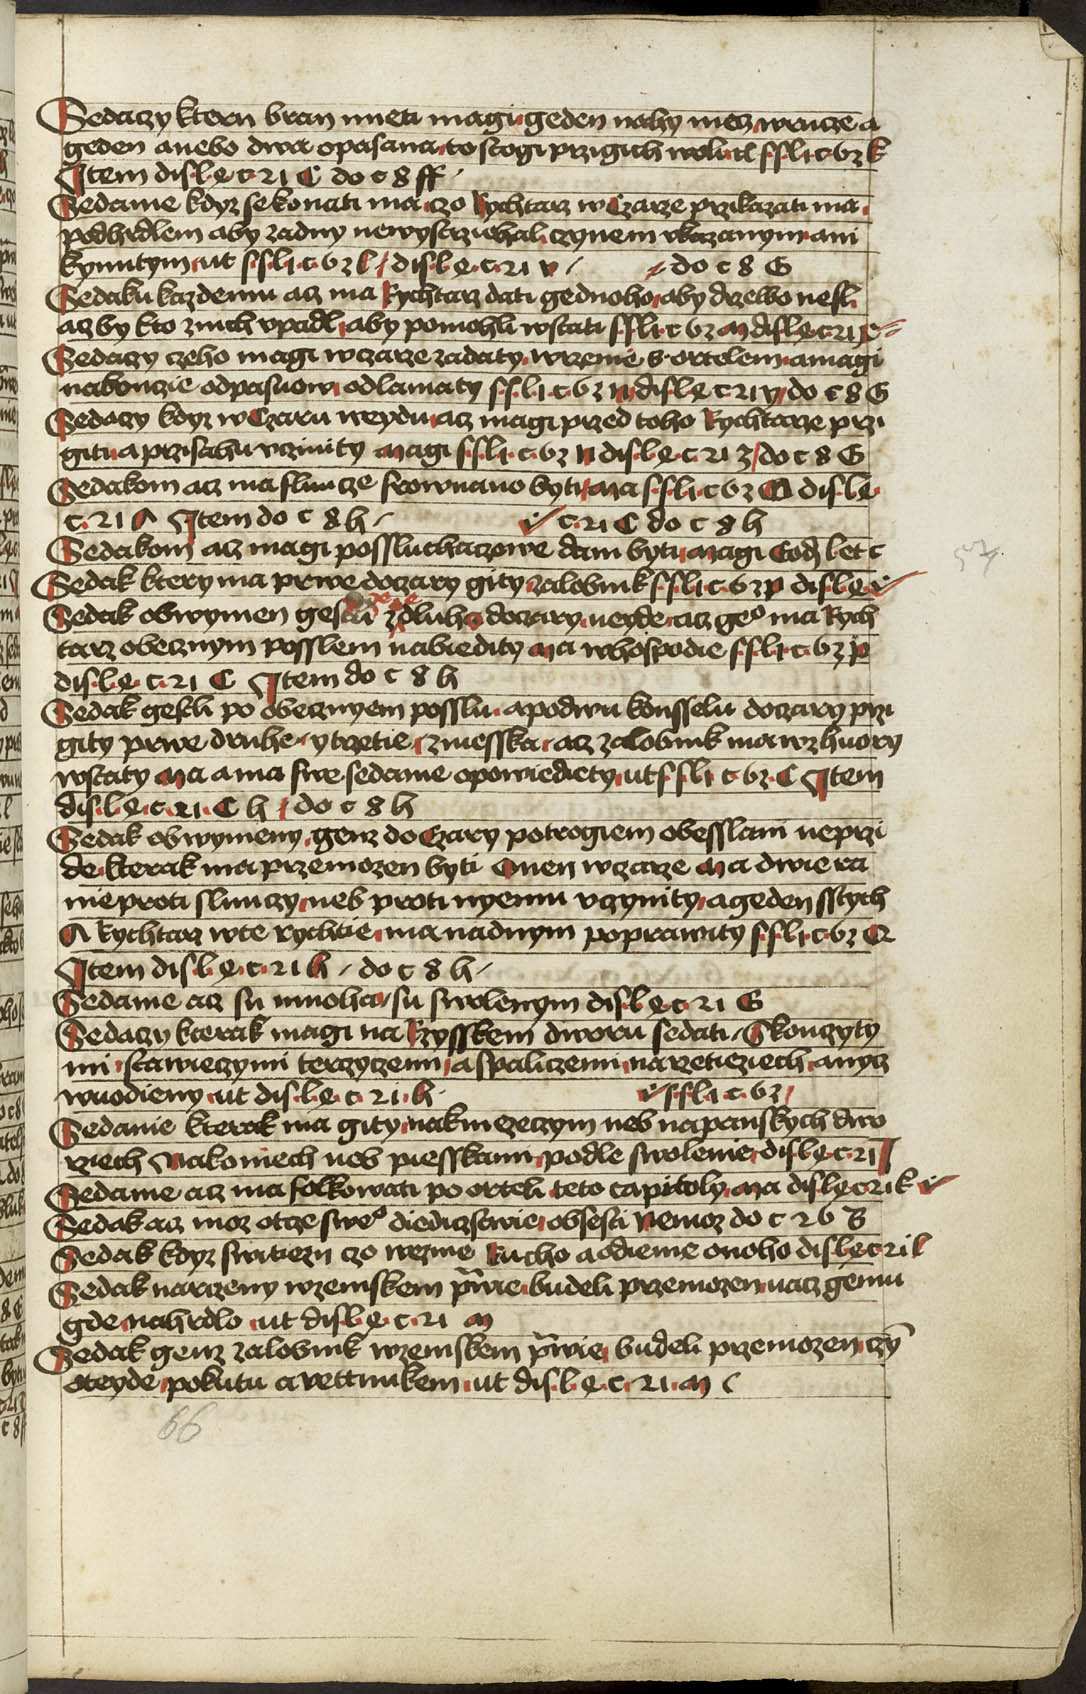 Sedaczy kteru bran mieti magi geden nahy mecz wrucze a
geden anebo dwa opasana to stogi przi gich woli ut s s li c 63 k
Item dis l e c 21 C do c 8 ff
Sedanie kdyz se konati ma czo Rychtarz w Czarze przikazati ma
pod hrdlem aby zadny newystrziehal czynem vkazanym ani
kynutym ut s s li c 63 l dis l e c 21 v do c 8 G
Sedaku kazdemu acz ma Rychtarz dati gednoho aby drzewo nesl
acz by kto z nich vpadl aby pomohli wstati s s li c 63 m dis l e c 21
Sedaczy czeho magi w czarze zadaty wrzeme s ortelem a magi
na koncze odpasuow odlamaty s s li c 63 n dis l e c 21 y do c 8 G
Sedaczy kdyz w Czaru weydu acz magi przed toho Rychtarze przi
gitu a przisahu vcziniti magi s s li c 63 n dis l e c 21 z do c 8 G
Sedakom acz ma slunce srownano byti ma s s li c 63 O dis l e
c 21 A Item do c 8 h c 21 C do c 8 h
Sedakom acz magi possluchaczowe dani byti magi Codz let c
Sedak ktery ma prwe do czary gity zalobnik s s li c 63 p dis l e
Sedak obwynien gestli zdluha do czary neyde acz geo ma Rych
tarz obecznym posslem nabiedity ma w hospodie s s li c 63 p
dis l e c 21 C Item do c 8 h
Sedak gestli po obecznyem posslu a po dwu konsselu do czary przi
gity prwe druhe y trzetie zmesska acz zalobnik ma wzhuory
wstaty ma a ma swe sedanie opowiediety ut s s li c 63 C Item
dis l e c 21 C h do c 8 h
Sedak obwyneny genz do Czary po trogiem obesslani neprzi
de kterak ma przemozen byti Onen w czarze ma dwie ra
nie proti slunczy neb proti nyemu vczynity a geden sstych
A Rychtarz w te rychtie ma nad nym poprawity s s li c 63 Q
Item dis l e c 21 h do c 8 h
Sedanie acz su mnoha su swolenym dis l e c 21 G
Sedaczy kterak magi na Rzysskem dworu sedati Skonczyty
mi stawiczymi terczyczemi a spaliczemi na rzetieziech a nycz
wuodieny ut dis l e c 21 h s s li c 63
Sedanie kterak ma gity na knezeczym neb na panskych dwo
rziech Na koniech neb piesskami podle swolenie dis l e c 21 I
Sedanie acz ma folkowati po orteli teto capitoly ma dis l e c 21 k
Sedak acz moz otcze sweo diediczstwie obsesti Nemoz do c 26 B
Sedak kdyz switiezy czo wezme Rucho a odienie onoho dis l e c 21 l
Sedak narczeny w zemskem prawie budeli przemozen nacz gemu
gde na hrdlo ut dis l e c 21 m
Sedak genz zalobnik w zemskem prawie budeli przemozen czy
oteyde pokutu a wettunkem ut dis l e c 21 m
57
66